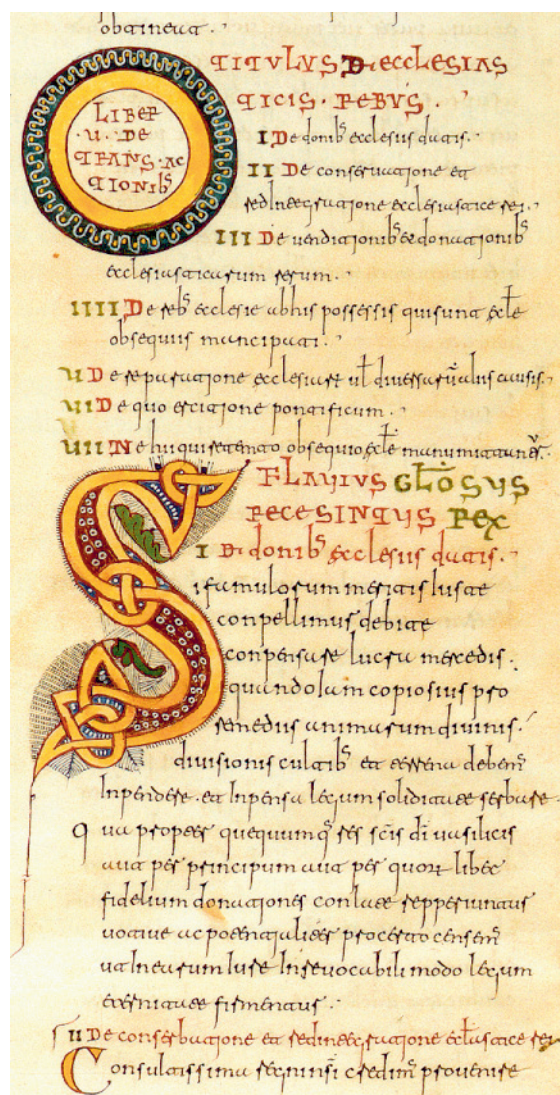 obtineat.
LIBER
·U· DE
TRANS·AC
TIONIBS
TITULUS DE ECCLESIAS
TICIS·REBUS·
I De donibs ecclesiis datis·
II De conserbatione et
redintegratione ecclesiastice rei·
III De venditionibs et donationibs
ecclesiasticarum rerum·
IIII De rebs ecclesie ab his possessis qui sunt eccle
obsequiis mancipati·
UI De quo ercitione pontificum·
FLAVIUS GLOSUS
RECESINTUS REX
I De donibs ecclesiis datis·
Si famulorum meritis iuste
conpellimus debite
conpensare lucra mercedis·
quando iam copiosius pro
remediis animarum divinis·
divisionis cultibs et terrena debem
Inpendere· et Inpensa legum soliditate serbare·
Qua propter quequumq res scis di vasilicis
aut per principum aut per quorlibet
fidelium donationes conlate repperiuntur
votive ac potentialiter pro certo censem
ut in earum iure Inrevocabili modo legum
eternitate firmentur·
II De conserbatione et redintegratione eclastice rei
Consultissima regni nsi credim provenire